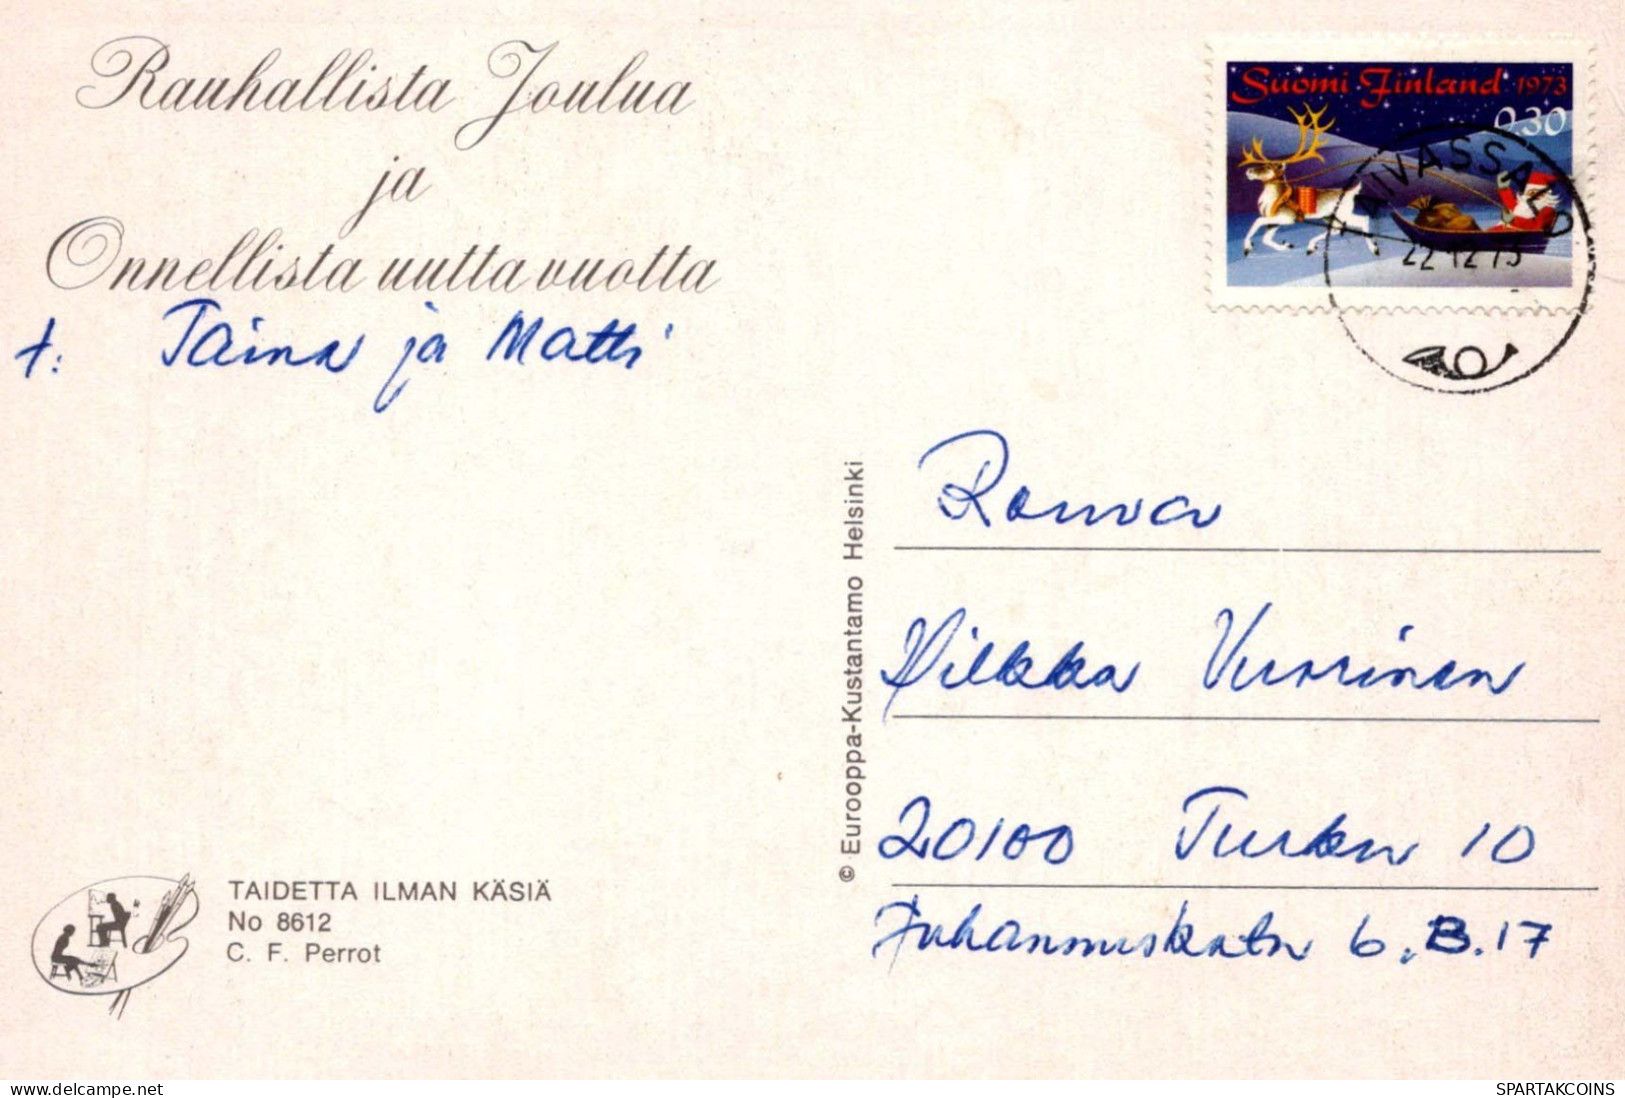 Rauhallista Joulua
ja
Onnellista uutta vuotta
t: Taina ja Matti
Suomi Finland 1973
0.30
TAIVASSALO
22.12.73
© Eurooppa-Kustantamo Helsinki
Rouva
Hilkka Vuorinen
20100 Turku 10
Juhannuskatu 6.B.17
TAIDETTA ILMAN KÄSIÄ
No 8612
C. F. Perrot
delcampe.net
SPARTAKCOINS